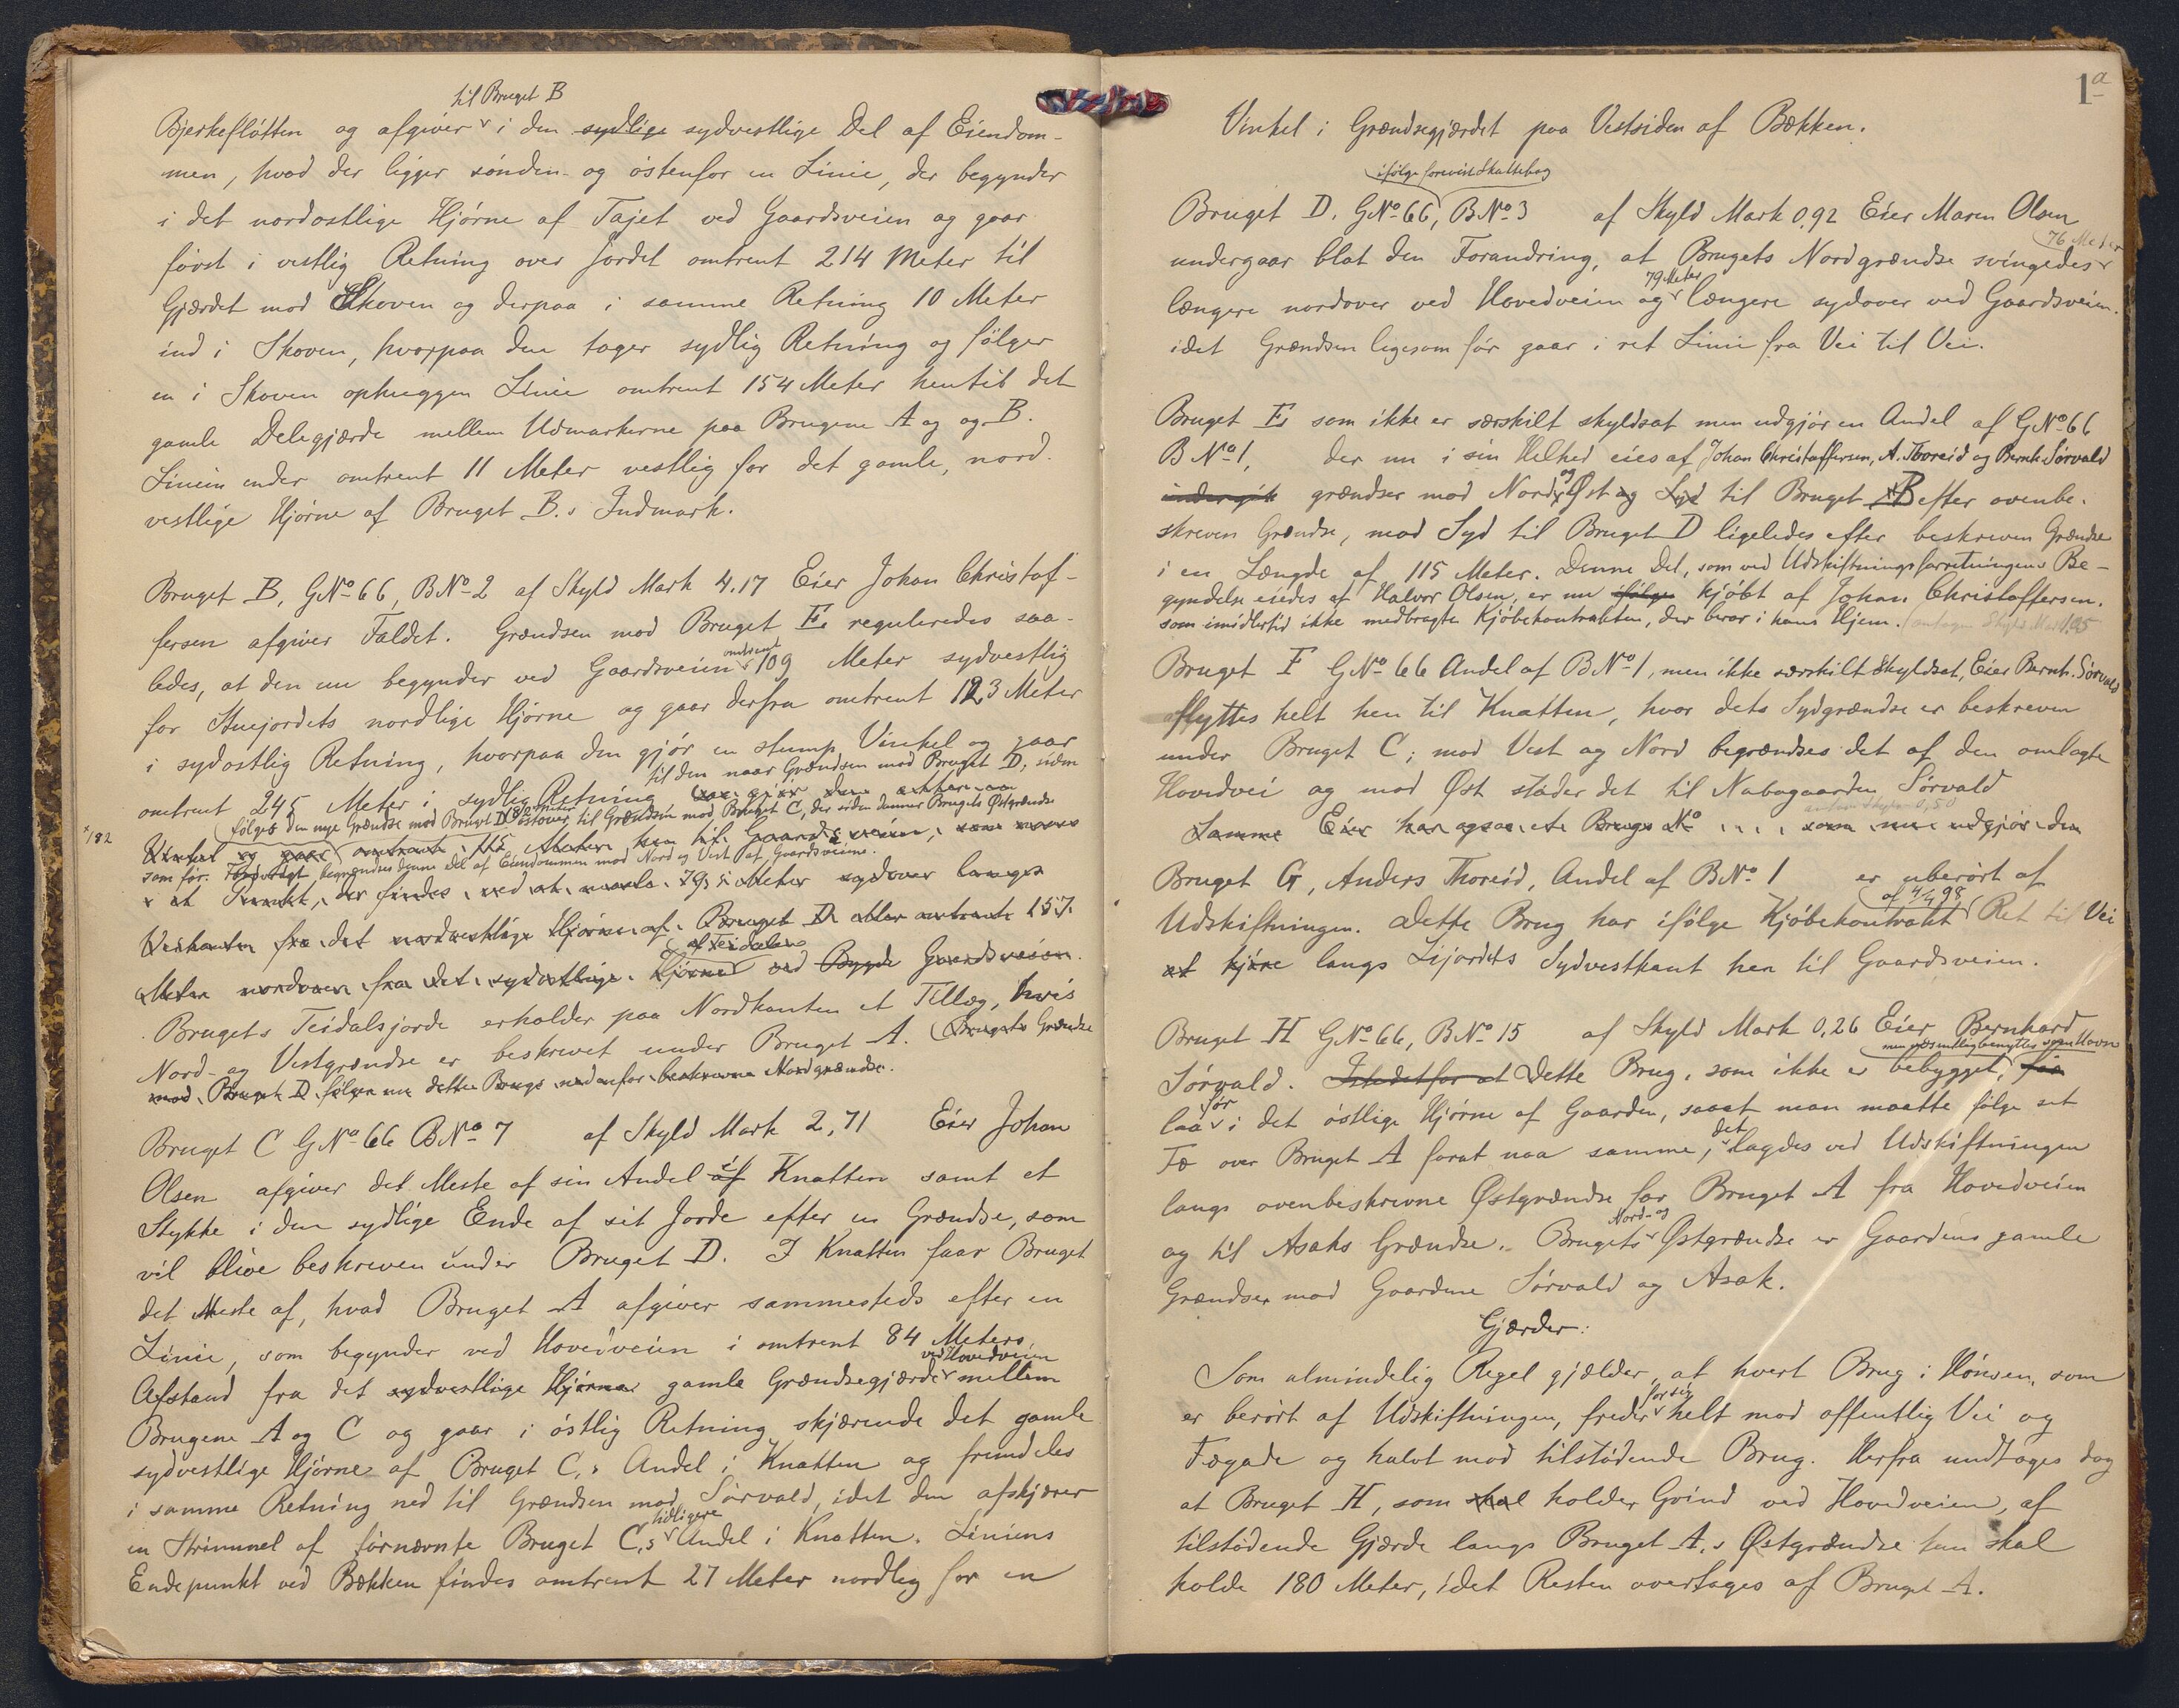 til Bruget B
Bjerkeflötten og afgiver i den sydlige sydvestlige Del af Eiendom-
men, hvad der ligger sönden- og östenfor en Linie, der begynder
i det nordostlige Hjörne af Tajet ved Gaardsveien og gaar
först i vestlig Retning over Jordet omtrent 214 Meter til
Gjærdet mod Skoven og derpaa i samme Retning 10 Meter
ind i Skoven, hvorpaa den tager sydlig Retning og fölger
en i Skoven ophuggen Linie omtrent 154 Meter hentil det
gamle Delegjærde mellem Udmarkerne paa Brugene A og og B.
Linien ender omtrent 11 Meter vestlig for det gamle, nord-
vestlige Hjörne af Bruget B.s Indmark.
Bruget B, GNo 66, BNo 2 af Skyld Mark 4.17 Eier Johan Christof-
fersen afgiver Faldet. Grændsen mod Bruget E reguleredes saa-
ledes, at den nu begynder ved Gaardsveien omtrent 109 Meter sydvestlig
for Stuejordets nordlige Hjörne og gaar derfra omtrent 123 Meter
i sydostlig Retning, hvorpaa den gjör en stump Vinkel og gaar
til den naar Grændsen mod Bruget D, siden
omtrent 245 Meter i sydlig Retning
fölges den nye Grændse mod Bruget D östover til Grændsen mod Bruget C, der siden danner Brugets Östgrændse
x 182
Vinkel og gaar omtrent 115 Meter hen til Gaardsveien, som
som för. Forövrigt begrændses denne Del af Eiendommen mod Nord og Vest af Gaardsveiene.
et Punkt, der findes ved at maale 79,5 Meter sydover langs
Veikanten fra det nordvestlige Hjörne af Bruget D eller omtrent 157
af Teidalen
Meter nordover fra det sydostlige Hjörne ved Bygde Gaardsveien.
Brugets Teidalsjorde erholder paa Nordkanten et Tillæg, hvis
Nord- og Vestgrændse er beskrevet under Bruget A. Brugets Grændse
mod Bruget D fölger nu dette Brugs nedenfor beskrevne Nordgrændse.
Bruget C GNo 66 BNo 7 af Skyld Mark 2,71 Eier Johan
Olsen afgiver det Meste af sin Andel i Knatten samt et
Stykke i den sydlige Ende af sit Jorde efter en Grændse, som
vil blive beskreven under Bruget D. I Knatten faar Bruget
det Meste af, hvad Bruget A afgiver sammesteds efter en
Linie, som begynder ved Hovedveien i omtrent 84 Meters
ved Hovedveien
Afstand fra det sydvestlige Hjörne gamle Grændsegjærde mellem
Brugene A og C og gaar i östlig Retning skjærende det gamle
sydvestlige Hjörne af Bruget C,s Andel i Knatten og fremdeles
i samme Retning ned til Grændsen mod Sörvald, idet den afskjærer
tidligere
en Strimmel af förnævnte Bruget C,s Andel i Knatten. Liniens
Endepunkt ved Bækken findes omtrent 27 Meter nordlig for en
1a
Vinkel i Grændsegjærdet paa Vestsiden af Bækken.
ifölge forevist Skattebog
Bruget D, GNo 66, BNo 3 af Skyld Mark 0,92 Eier Maren Olsen
76 Meter
undergaar blot den Forandring, at Brugets Nordgrændse svingedes
79 Meter
længere nordover ved Hovedveien og længere sydover ved Gaardsveien.
idet Grændsen ligesom för gaar i ret Linie fra Vei til Vei.
Bruget E som ikke er særskilt skyldsat men udgjör en Andel af GNo 66
BNo 1, der nu i sin Helhed eies af Johan Christoffersen, A. Thoreid og Bernh. Sörvald
undergik grændser mod Nord og Øst og Syd til Bruget B efter ovenbe-
skreven Grændse, mod Syd til Bruget D ligeledes efter beskreven Grændse
i en Længde af 115 Meter. Denne Del, som ved Udskiftningsforretningens Be-
gyndelse eiedes af Halvor Olsen, er nu ifölge kjöbt af Johan Christoffersen.
som imidlertid ikke medbragte Kjöbekontrakten, der beror i hans Hjem. (antagen Skyld Mark 1,95
Bruget F GNo 66 Andel af BNo 1, men ikke særskilt Skyldsat, Eier Bernh. Sörvald
flyttes helt hen til Knatten, hvor dets Sydgrændse er beskreven
under Bruget C; mod Vest og Nord begrændses det af den omlagte
Hovedvei og mod Øst stöder det til Nabogaarden Sörvald
antagen Skyld 0,50
Samme Eier har ogsaa et Brugs No .... som nu udgjör den
Bruget G, Anders Thoreid, Andel af BNo 1 er uberört af
af 4/4 98
Udskiftningen. Dette Brug har ifölge Kjöbekontrakt Ret til Vei
at kjöre langs Lijordets Sydvestkant hen til Gaardsveien.
Bruget H GNo 66, BNo 15 af Skyld Mark 0,26 Eier Bernhard
men væsentlig benyttes som Havn
Sörvald. Istedetfor at Dette Brug, som ikke er bebygget, faa
laa för i det östlige Hjörne af Gaarden, saaat man maatte fölge sit
Fæ over Bruget A forat naa samme, det lagdes ved Udskiftningen
langs ovenbeskrevne Østgrændse for Bruget A fra Hovedveien
Nord- og
og til Asaks Grændse. Brugets Østgrændse er Gaardens gamle
Grændser mod Gaardene Sörvald og Asak.
Gjærder:
Som almindelig Regel gjælder, at hvert Brug i Hönsen, som
for sig
er berört af Udskiftningen, freder helt mod offentlig Vei og
Fægade og halvt mod tilstödende Brug. Herfra undtages dog
at Bruget H, som skal holder Grind ved Hovedveien, af
tilstödende Gjærde langs Bruget A,s Østgrændse kun skal
holde 180 Meter, idet Resten overtages af Bruget A.